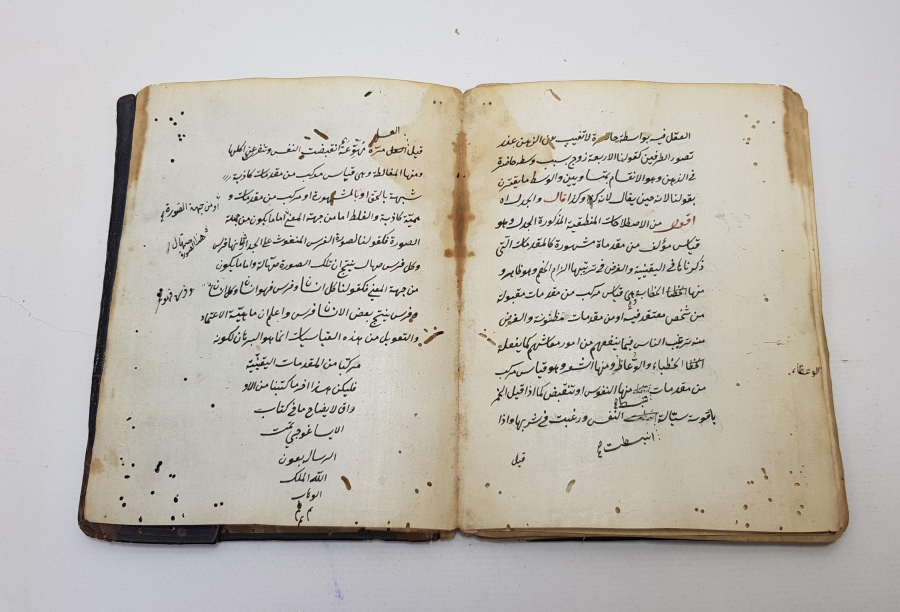 العقل فيه بواسطة حاضرة لا تغيب عن الذهن عند
تصور الطرفين كقولنا الاربعة زوج بسبب وسط حاضرة
في الذهن وهو الانقسام بمتساويين والوسط ما يقترن
بقولنا لانه حين يقال لانه كذا وكذا قال والجدل اه
اقول من الاصطلاحات المنطقية المذكورة الجدل وهو
قياس مؤلف من مقدماة مشهورة كالمقدمات التي
ذكرناها في اليقينية والغرض في ترتيبها الزام الخصم وهو ظاهر و
منها الخطابة وهي قياس مركب من مقدمات مقبولة
من شخص معتقد فيه او من مقدمات مظنونة والغرض
منه ترغيب الناس فيما ينفعهم من امور معاشهم كما يفعله
الخطباء والوعاظ ومنها الشعر وهو قياس مركب
من مقدمات تنبسط منها النفوس او تنقبض كما اذا قيل الخمر
ياقوتية سيالة انبسطت النفس ورغبت في شربها واذا
انبسطت
قيل
العسل
قيل العسل مرة مهوعة انقبضت النفس وتنفر عن اكلها
ومنها المغالطة وهي قياس مركب من مقدمات كاذبة
شبيهة بالحق او بالمشهورة او مركب من مقدمات و
همية كاذبة والغلط اما من جهة المعنى اما ما يكون من جهة
او من جهة الصورة
الصورة فكقولنا لصورة الفرس المنقوش على الجدار انها فرس
وكل فرس صهال ينتج ان تلك الصورة صهالة واما ما يكون
من جهة المعنى فكقولنا كل انسان وفرس فهو انسان وكل انسان
وفرس فرس ينتج بعض الانسان فرس واعلم ان ماهية الاعتماد
والتعويل من هذه القياسات انما هو البرهان لكونه
مركبا من المقدمات اليقينية
فليكن هذا اخر ما كتبنا من الاو
راق لايضاح ما في كتاب
الايساغوجي تمت
الرسالة بعون
الله الملك
الوهاب
م م م